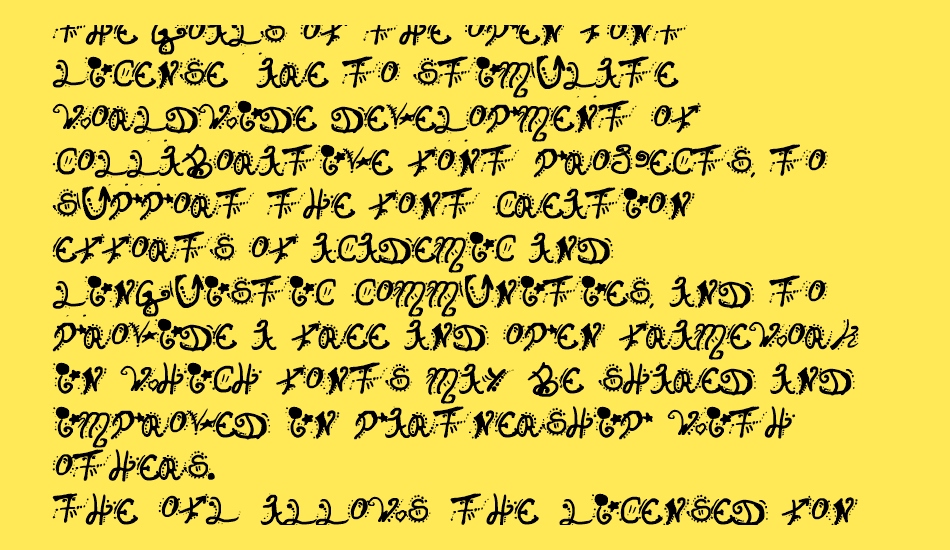 THE GOALS OF THE OPEN FONT
LICENSE ARE TO STIMULATE
WORLDWIDE DEVELOPMENT OF
COLLABORATIVE FONT PROJECTS, TO
SUPPORT THE FONT CREATION
EFFORTS OF ACADEMIC AND
LINGUISTIC COMMUNITIES, AND TO
PROVIDE A FREE AND OPEN FRAMEWORK
IN WHICH FONTS MAY BE SHARED AND
IMPROVED IN PARTNERSHIP WITH
OTHERS.
THE OFL ALLOWS THE LICENSED FON